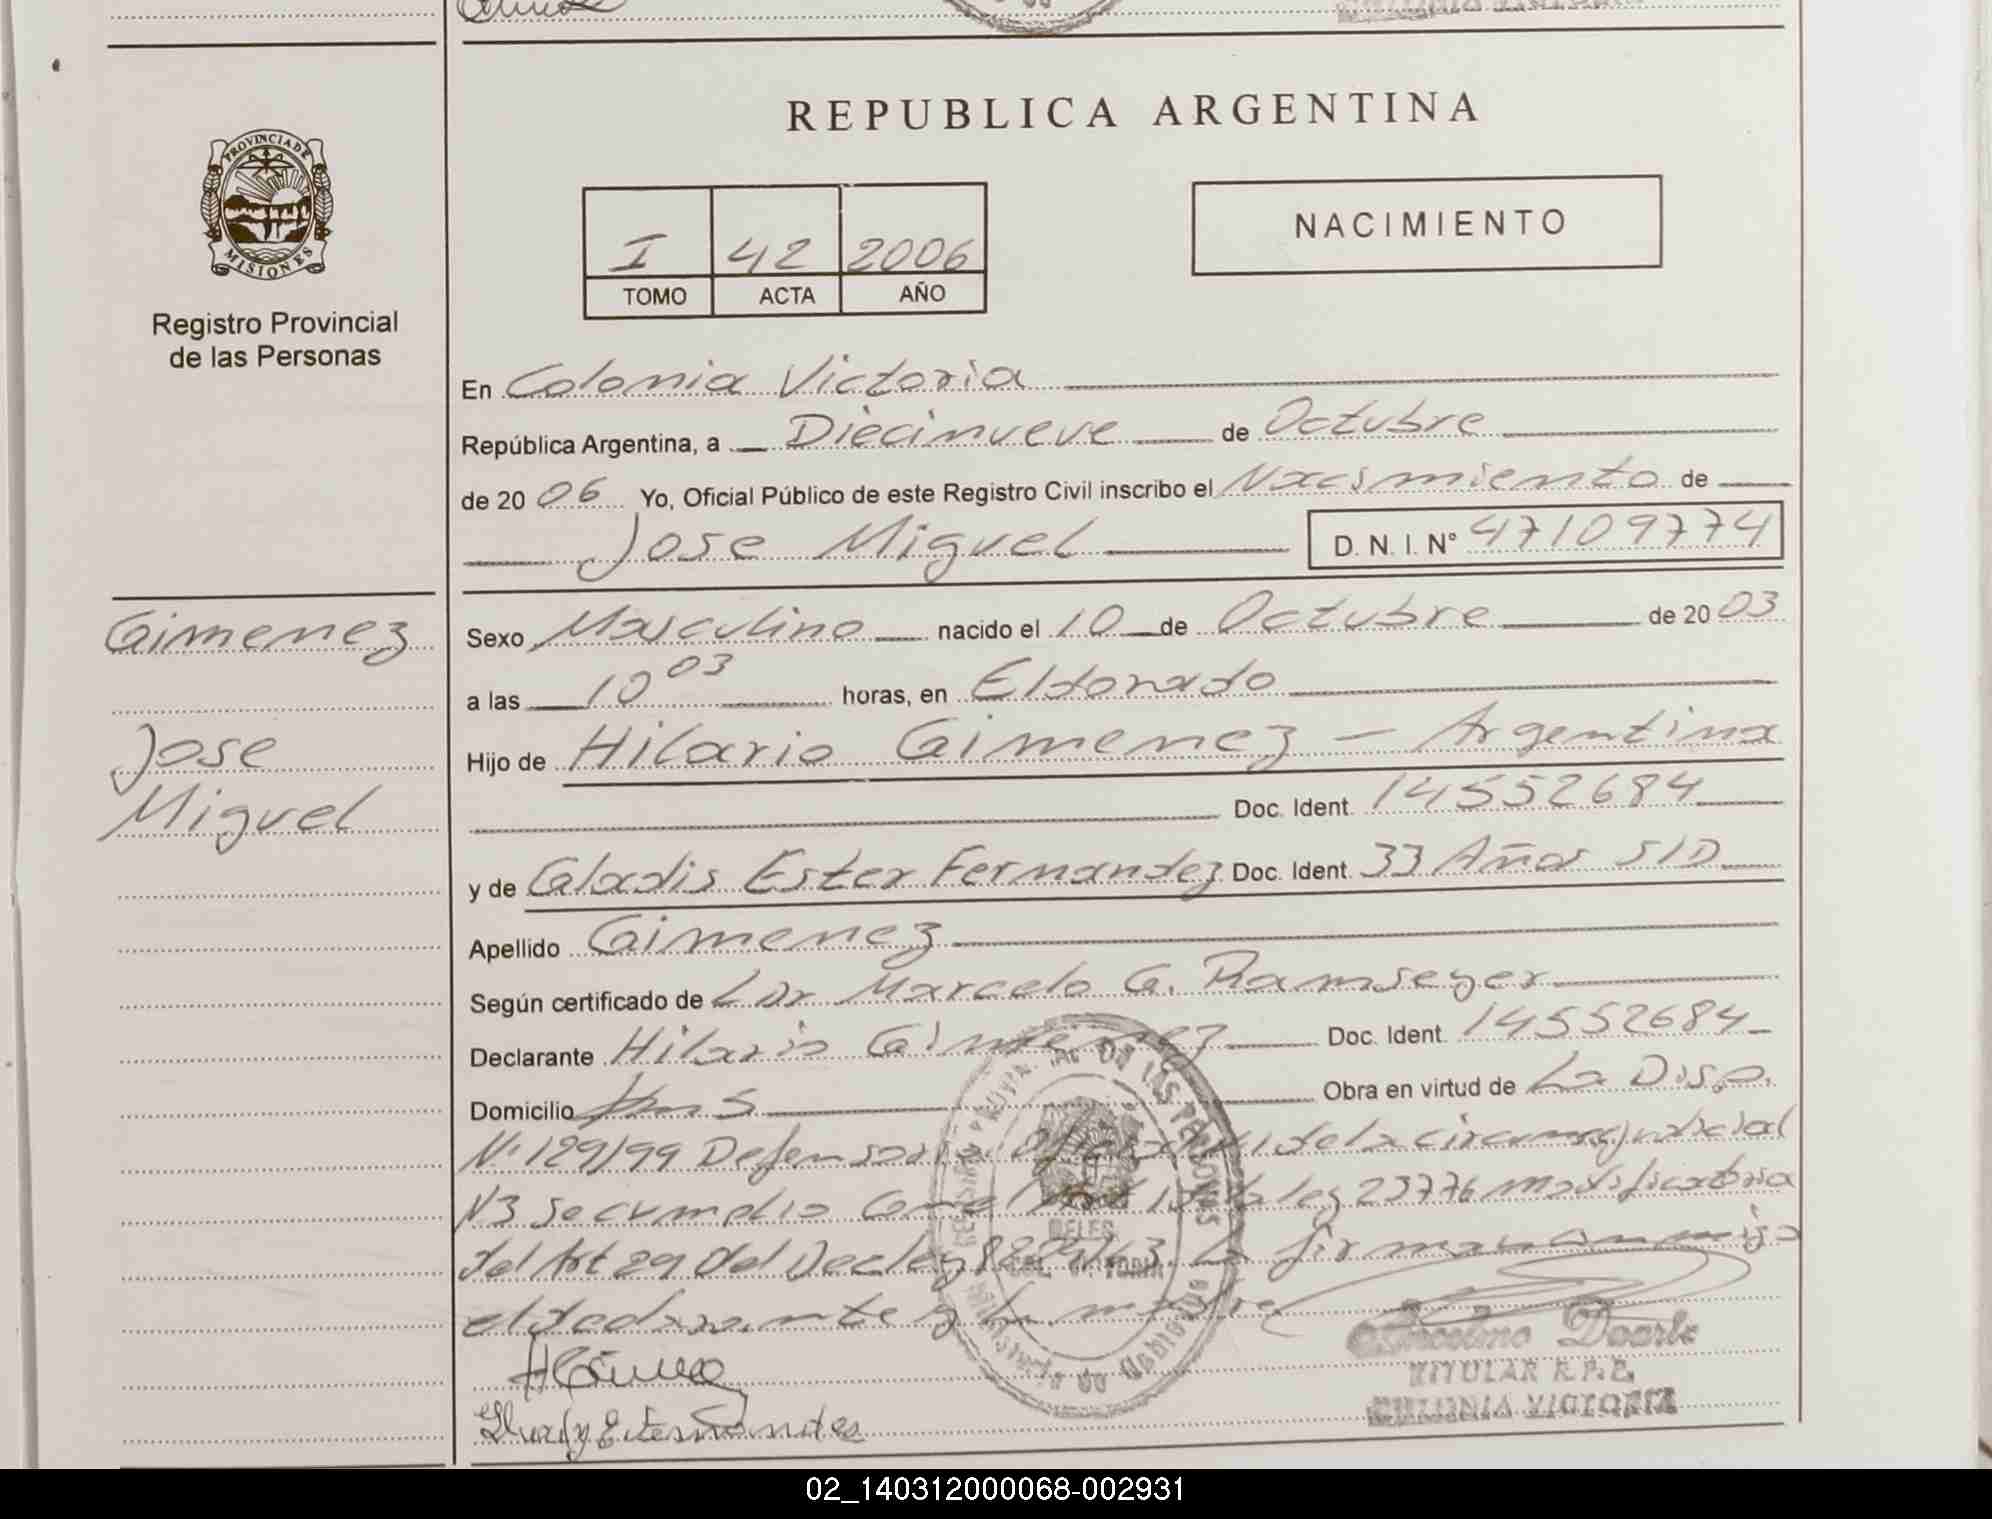 REPUBLICA ARGENTINA
PROVINCIA DE
MISIONES
Registro Provincial
de las Personas
I 42 2006
TOMO ACTA AÑO
NACIMIENTO
En Colonia Victoria
República Argentina, a Diecinueve de Octubre
de 2006 Yo, Oficial Público de este Registro Civil inscribo el Nacimiento de
Jose Miguel D. N. I. N° 47109774
Gimenez
Jose
Miguel
Sexo Masculino nacido el 10 de Octubre de 2003
a las 10 03 horas, en Eldorado
Hijo de Hilario Gimenez - Argentina
Doc. Ident. 14552684
y de Gladis Ester Fernandez Doc. Ident. 33 Años S/D
Apellido Gimenez
Según certificado de Dr Marcelo G. Ramseyer
Declarante Hilario Gimenez Doc. Ident. 14552684
Domicilio Obra en virtud de La Disp.
N° 129/99 Defensoria de la circuns judicial
N3 Se cumplio con el ley 23776 modificatoria
del Art 29 Del Decley 8204/63. La firman conmigo
el declarante y la madre.
Doarte
TITULAR R.P.P.
COLONIA VICTORIA
DELEG.
COL. VICTORIA
02_140312000068-002931